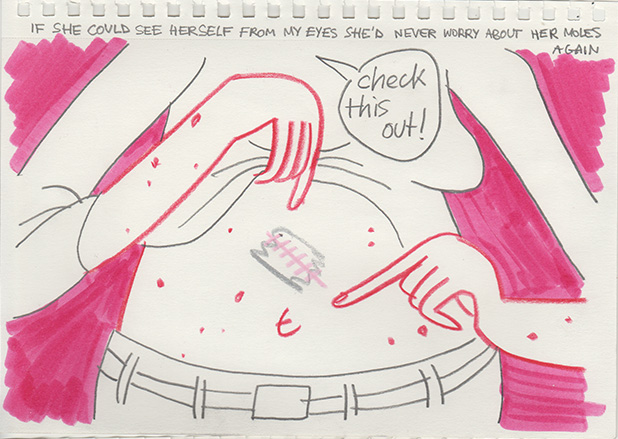 IF SHE COULD SEE HERSELF FROM MY EYES SHE'D NEVER WORRY ABOUT HER MOLES
AGAIN
check
this
out!